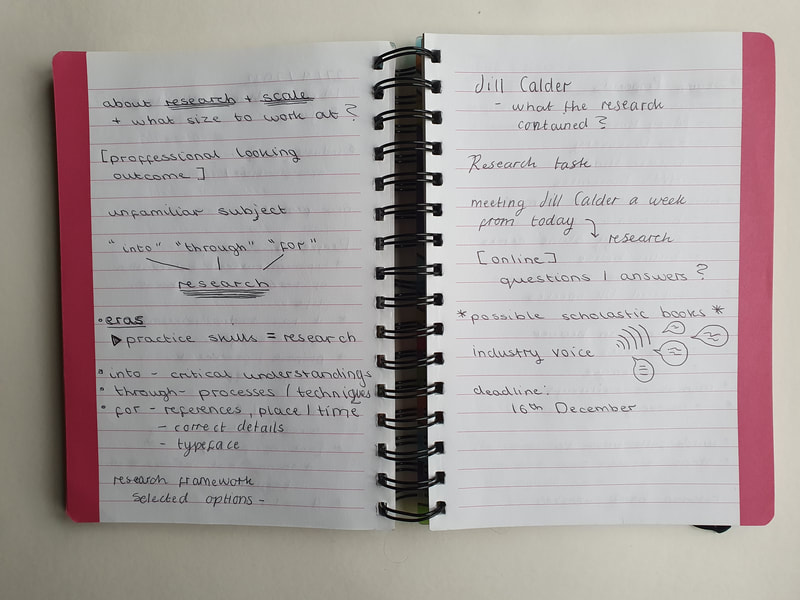 about research + scale
+ what size to work at?
[proffessional looking
outcome]
unfamiliar subject
"into" "through" "for"
research
• eras
practice skills = research
• into - critical understandings
• through - processes / techniques
• for - references, place / time
- correct details
- typeface
research framework
selected options -
Jill Calder
- what the research
contained?
Research task
meeting Jill Calder a week
from today
research
[online]
questions / answers?
*possible scholastic books*
industry voice
deadline:
16th December